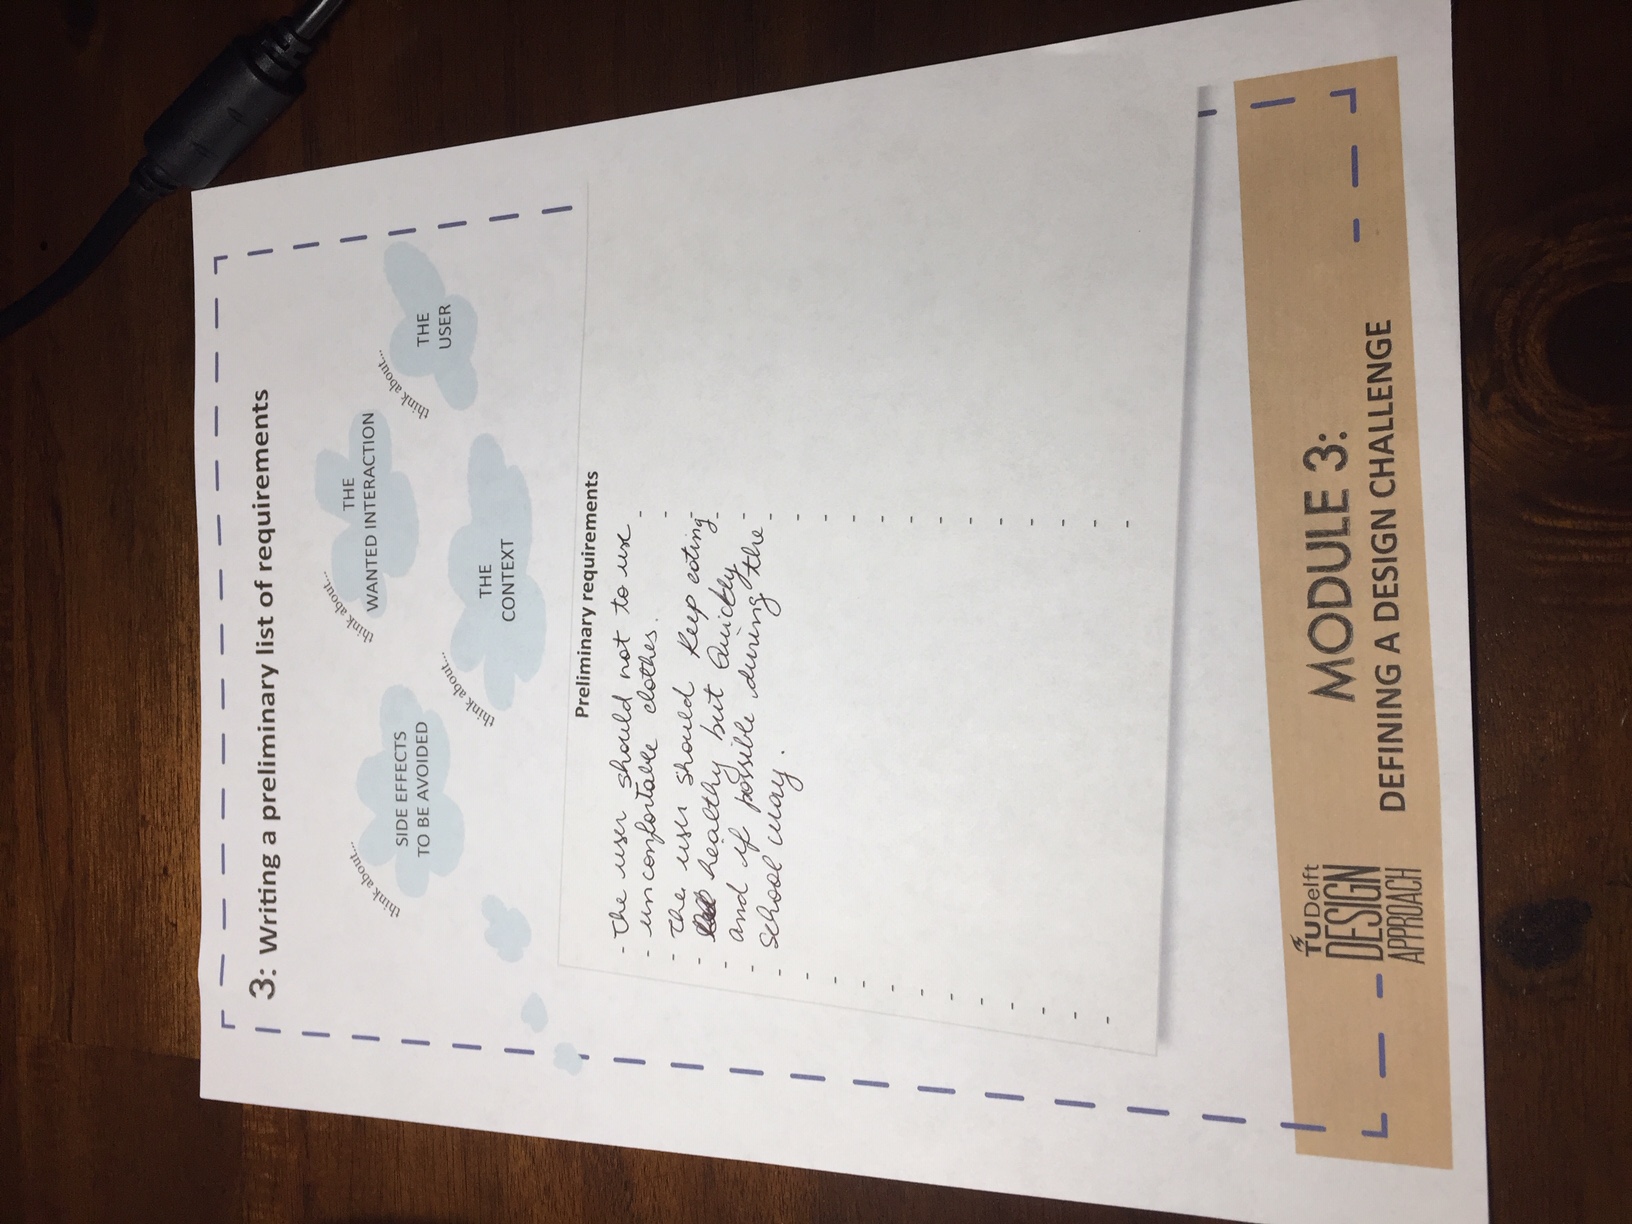 3: Writing a preliminary list of requirements
think about...
THE
WANTED INTERACTION
think about...
SIDE EFFECTS
TO BE AVOIDED
think about...
THE
USER
think about...
THE
CONTEXT
Preliminary requirements
- The user should not to use
- unconfortable clothes.
- The user should keep eating
healthy but Quickly
and if possible during the
school way.
TU Delft
DESIGN
APPROACH
MODULE 3:
DEFINING A DESIGN CHALLENGE